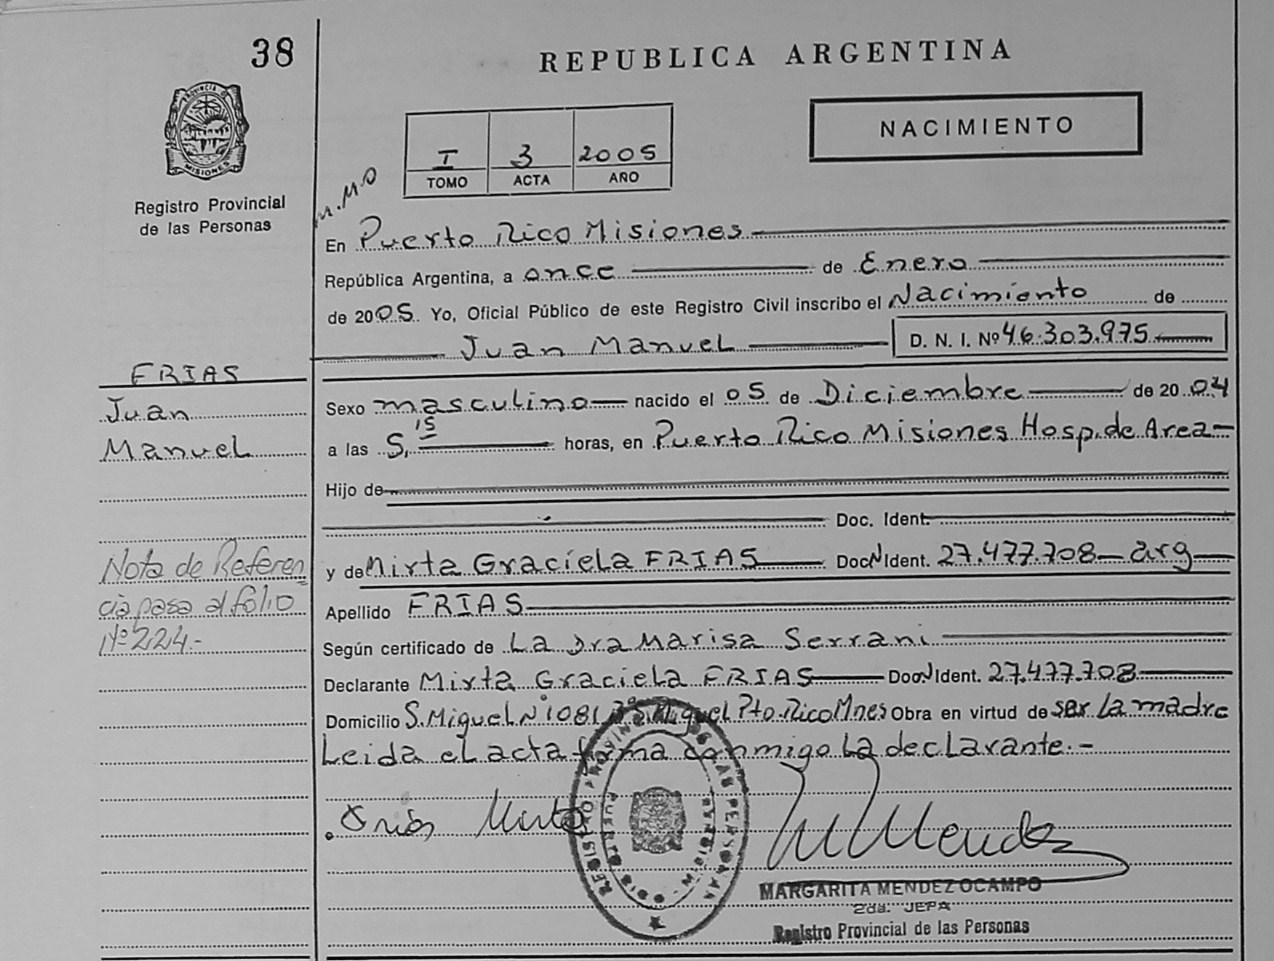 38
REPUBLICA ARGENTINA
PROVINCIA DE MISIONES
Registro Provincial
de las Personas
I 3 2005
TOMO ACTA AÑO
NACIMIENTO
M.M.O
En Puerto Rico Misiones
República Argentina, a once de Enero
de 2005. Yo, Oficial Público de este Registro Civil inscribo el Nacimiento de
Juan Manuel D. N. I. Nº 46.303.975
FRIAS
Juan
Manuel
Sexo masculino nacido el 05 de Diciembre de 2004
a las 5,15 horas, en Puerto Rico Misiones Hosp. de Area
Hijo de
Doc. Ident.
y de Mirta Graciela FRIAS Doc N Ident. 27.477.708 arg
Nota de Referen
cia pasa al folio
Nº 224.-
Apellido FRIAS
Según certificado de La Dra Marisa Serrani
Declarante Mirta Graciela FRIAS Doc N Ident. 27.477.708
Domicilio S. Miguel Nº 1081 Bº S. Miguel Pto. Rico Mnes Obra en virtud de ser la madre
Leida el acta firma conmigo la declarante.-
Frias Mirta
M Mendez
REGISTRO PROVINCIAL DE LAS PERSONAS
MARGARITA MENDEZ OCAMPO
2da. JEFA
Registro Provincial de las Personas